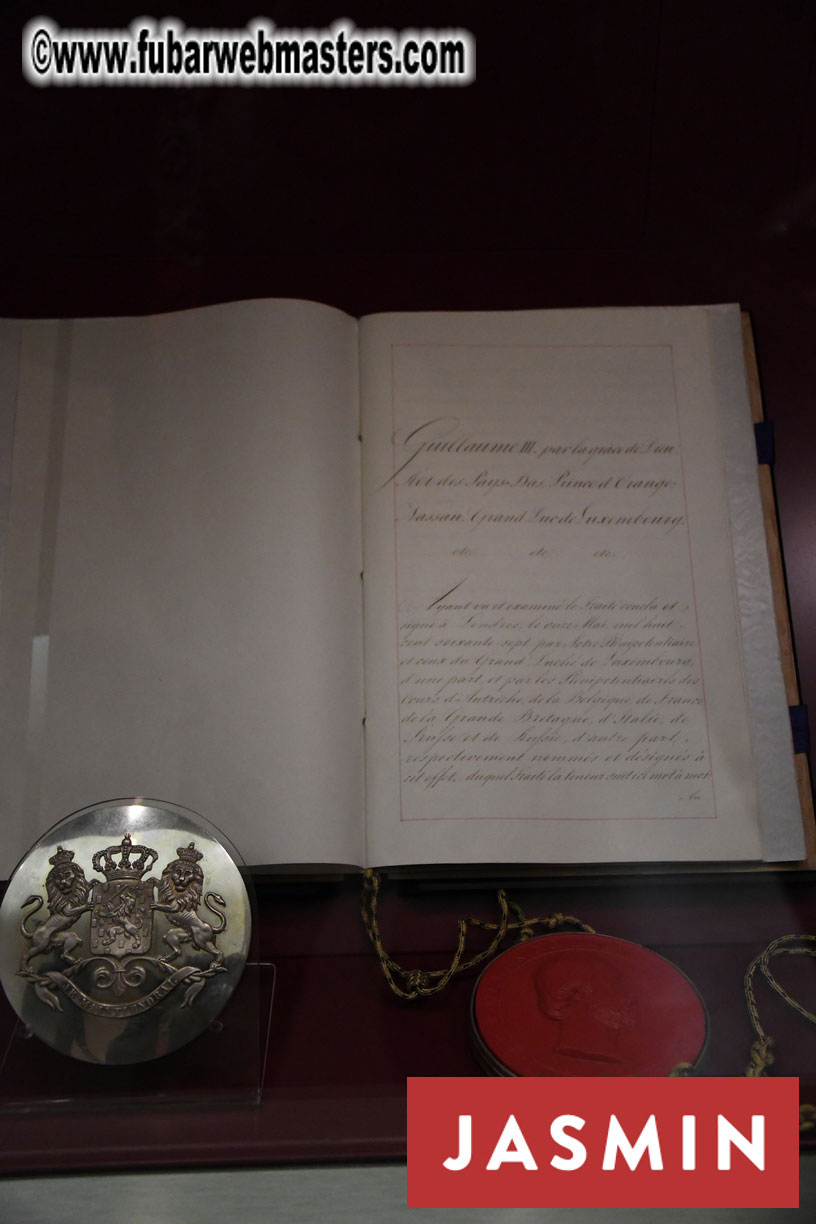 ©www.fubarwebmasters.com
Guillaume III. par la grâce de Dieu
Roi des Pays-Bas, Prince d'Orange-
Nassau, Grand Duc de Luxembourg
etc. etc. etc.
Ayant vu et examiné le Traité conclu et
signé à Londres, le onze Mai, mil huit
cent soixante-sept par Notre Plénipotentiaire
et ceux du Grand Duché de Luxembourg,
d'une part, et par les Plénipotentiaires des
Cours d'Autriche, de la Belgique, de France,
de la Grande Bretagne, d'Italie, de
Prusse et de Russie, d'autre part,
respectivement nommés et désignés à
cet effet, duquel Traité la teneur suit ici mot à mot
JE MAINTIENDRAI
JASMIN